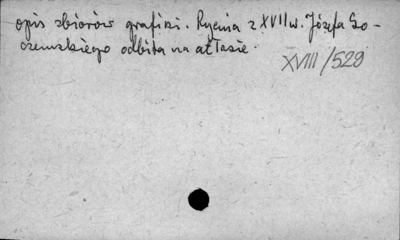 opis zbiorów grafiki. Rycina z XVII w. Józefa Go-
czemskiego odbita na atłasie.
XVIII/529